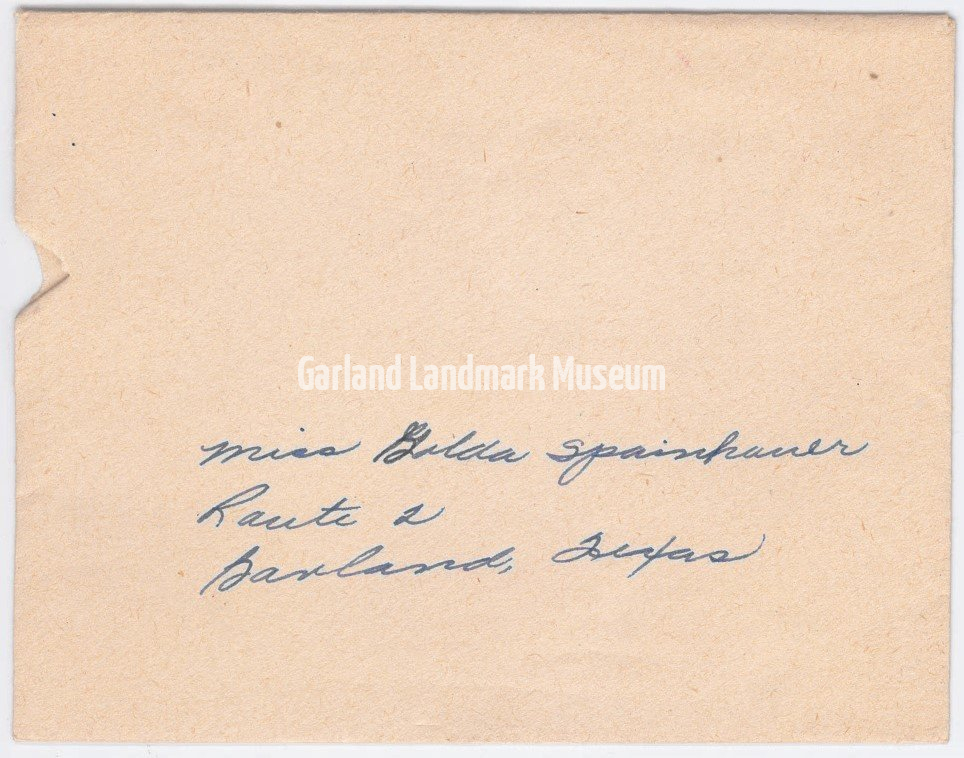 Garland Landmark Museum
Miss Gilda Spainhauer
Route 2
Garland, Texas